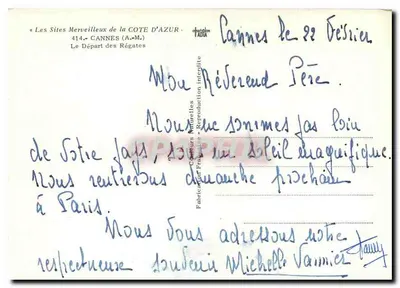 « Les Sites Merveilleux de la COTE D'AZUR »
414. - CANNES (A.-M.)
Le Départ des Régates
Cannes le 22 Février
Mon Révérend Père.
Nous ne sommes pas loin
de votre pays, sous un soleil magnifique.
Nous rentrerons dimanche prochain
à Paris.
Nous vous adressons notre
respectueux souvenir Michelle Vannier
Reproduction interdite